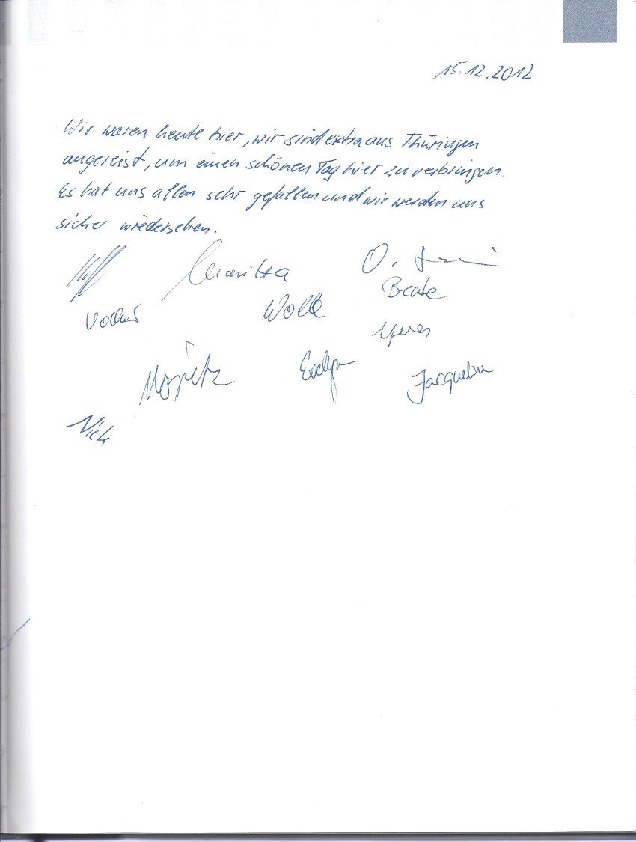 15.12.2012
Wir waren heute hier, wir sind extra aus Thüringen
angereist, um einen schönen Tag hier zu verbringen.
Es hat uns allen sehr gefallen und wir werden uns
sicher wiedersehen.
Beate
Moritz Evelyn Jacqueline
Nick